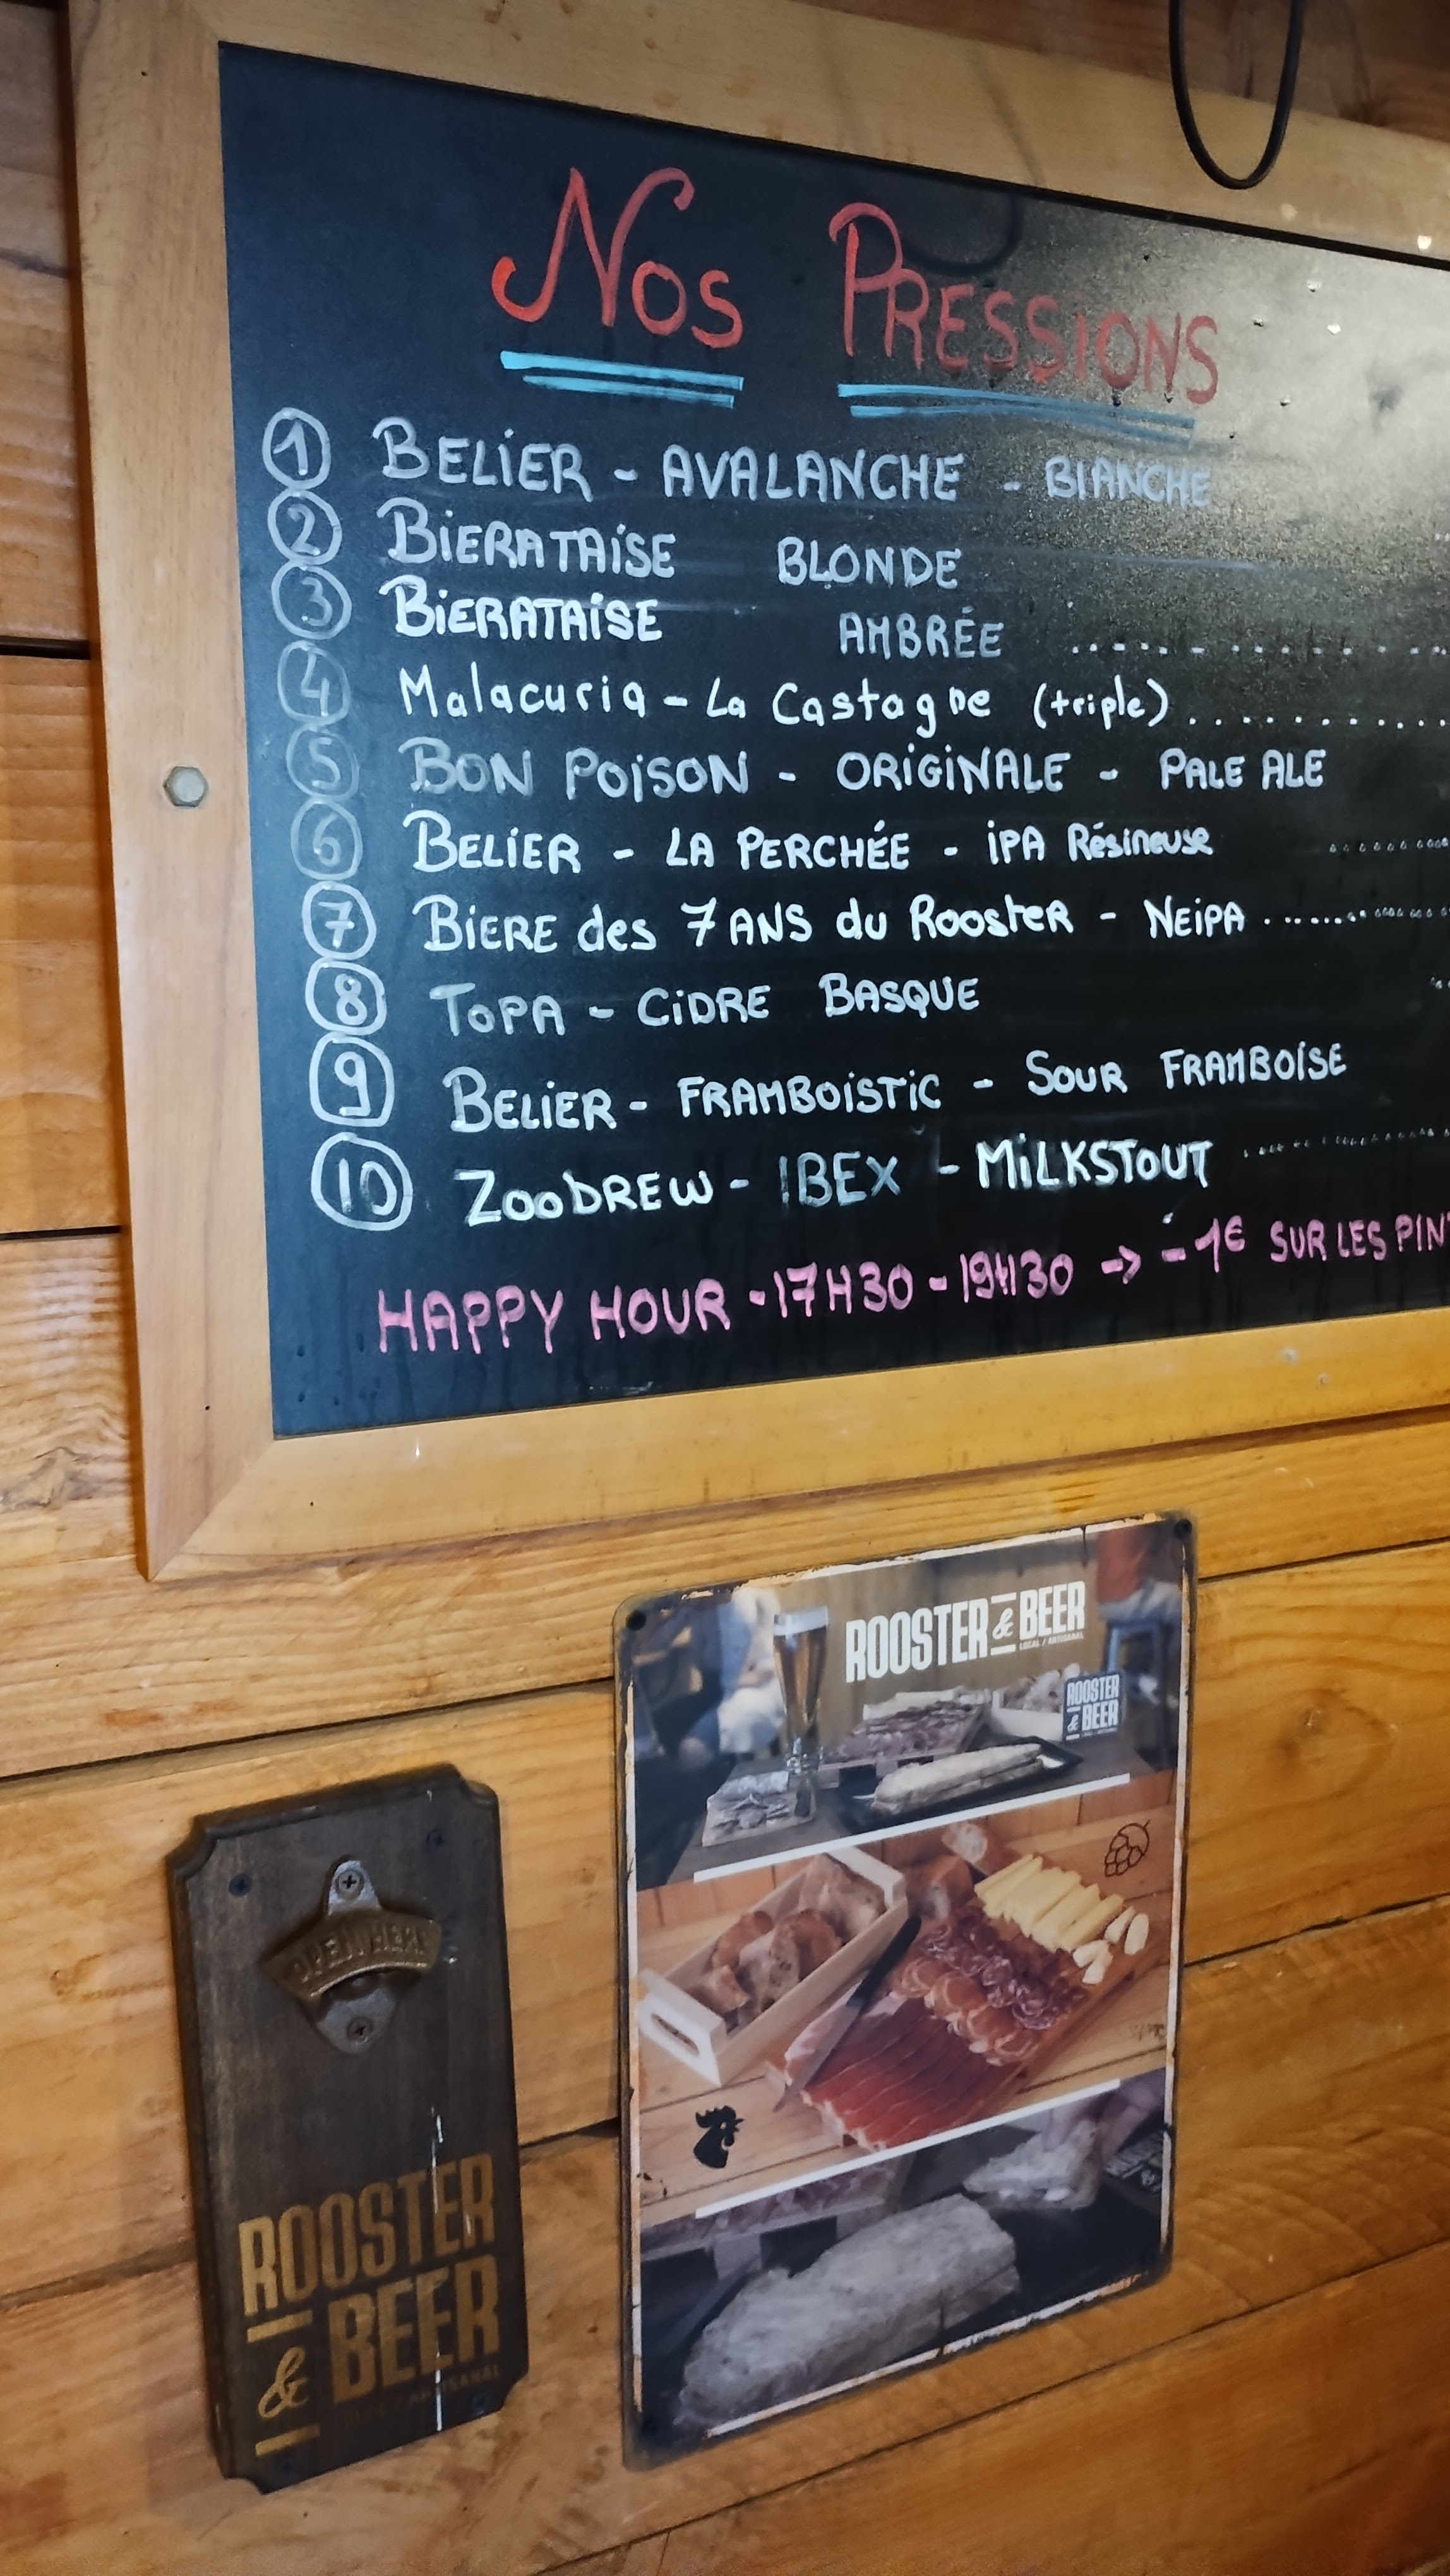 Nos PRESSIONS
1 BELIER - AVALANCHE - BLANCHE
2 BIERATAISE BLONDE
3 BIERATAISE AMBRÉE ..............
4 Malacuria - La Castagne (triple) ............
5 BON POISON - ORIGINALE - PALE ALE
6 BELIER - LA PERCHÉE - IPA Résineuse ..........
7 BIERE des 7 ANS du Rooster - NEIPA ..............
8 TOPA - CIDRE BASQUE
9 BELIER - FRAMBOISTIC - SOUR FRAMBOISE
10 ZOOBREW - IBEX - MILKSTOUT ..............
HAPPY HOUR - 17H30 - 19H30 → -1€ SUR LES PINT
ROOSTER & BEER
LOCAL / ARTISANAL
ROOSTER
& BEER
OPEN HERE
ROOSTER
& BEER
LOCAL / ARTISANAL